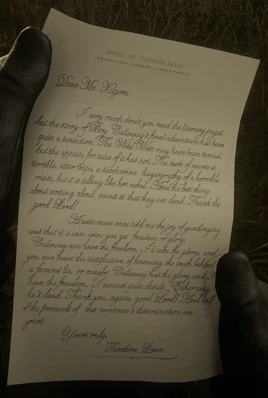 OFFICE OF THEODORE LEVIN
Dear Mr. Kilgore,
I very much doubt you read the literary pages
but the story of Boy Calloway's final adventure has been
quite a sensation. The Wild West may have been tamed,
but the appetite for tales of it has not. The book of course is
terrible, utter tripe, a saccharine hagiography of a horrible
man, but it is selling like hot cakes. And the best thing
about writing about saints is that they are dead. Thank the
good Lord!
A wise man once told me the joy of gunslinging
was that it is win-win: you get freedom or glory.
Calloway can have the freedom, I take the glory, and
you can have the satisfaction of knowing the truth behind
a famous lie, or maybe Calloway has the glory and I
have the freedom. I cannot quite decide. Either way,
he's dead. Thank you, again, good Lord! Find half
of the proceeds of this nonsense & dissemination are
yours.
Yours only,
Theodore Levin